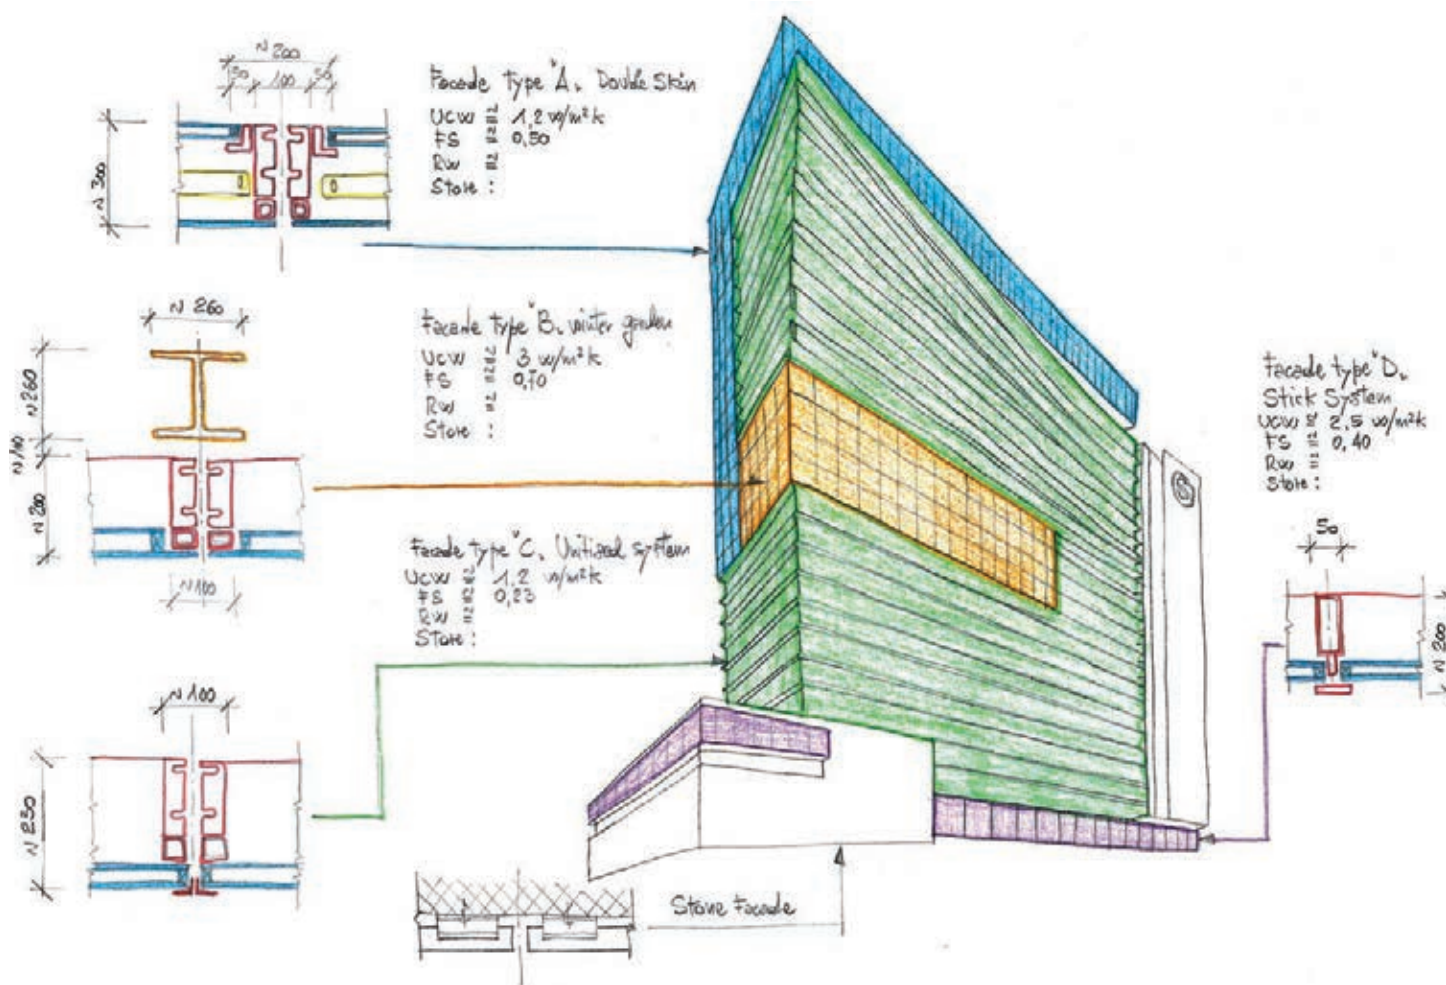 ~ 200
50 100 50
~ 300
Facade type "A" Double Skin
UCW = 1,2 w/m²k
FS = 0,50
RW =
Store :
~ 260
~ 260
~ 200
~ 100
Facade type "B" winter garden
UCW = 3 w/m²k
FS = 0,70
RW =
Store :
Facade type "C" Unitized system
UCW = 1,2 w/m²k
FS = 0,23
RW =
Store :
~ 100
~ 230
Facade type "D"
Stick System
UCW = 2,5 w/m²k
FS = 0,40
RW =
Store :
50
~ 200
S
Stone Facade